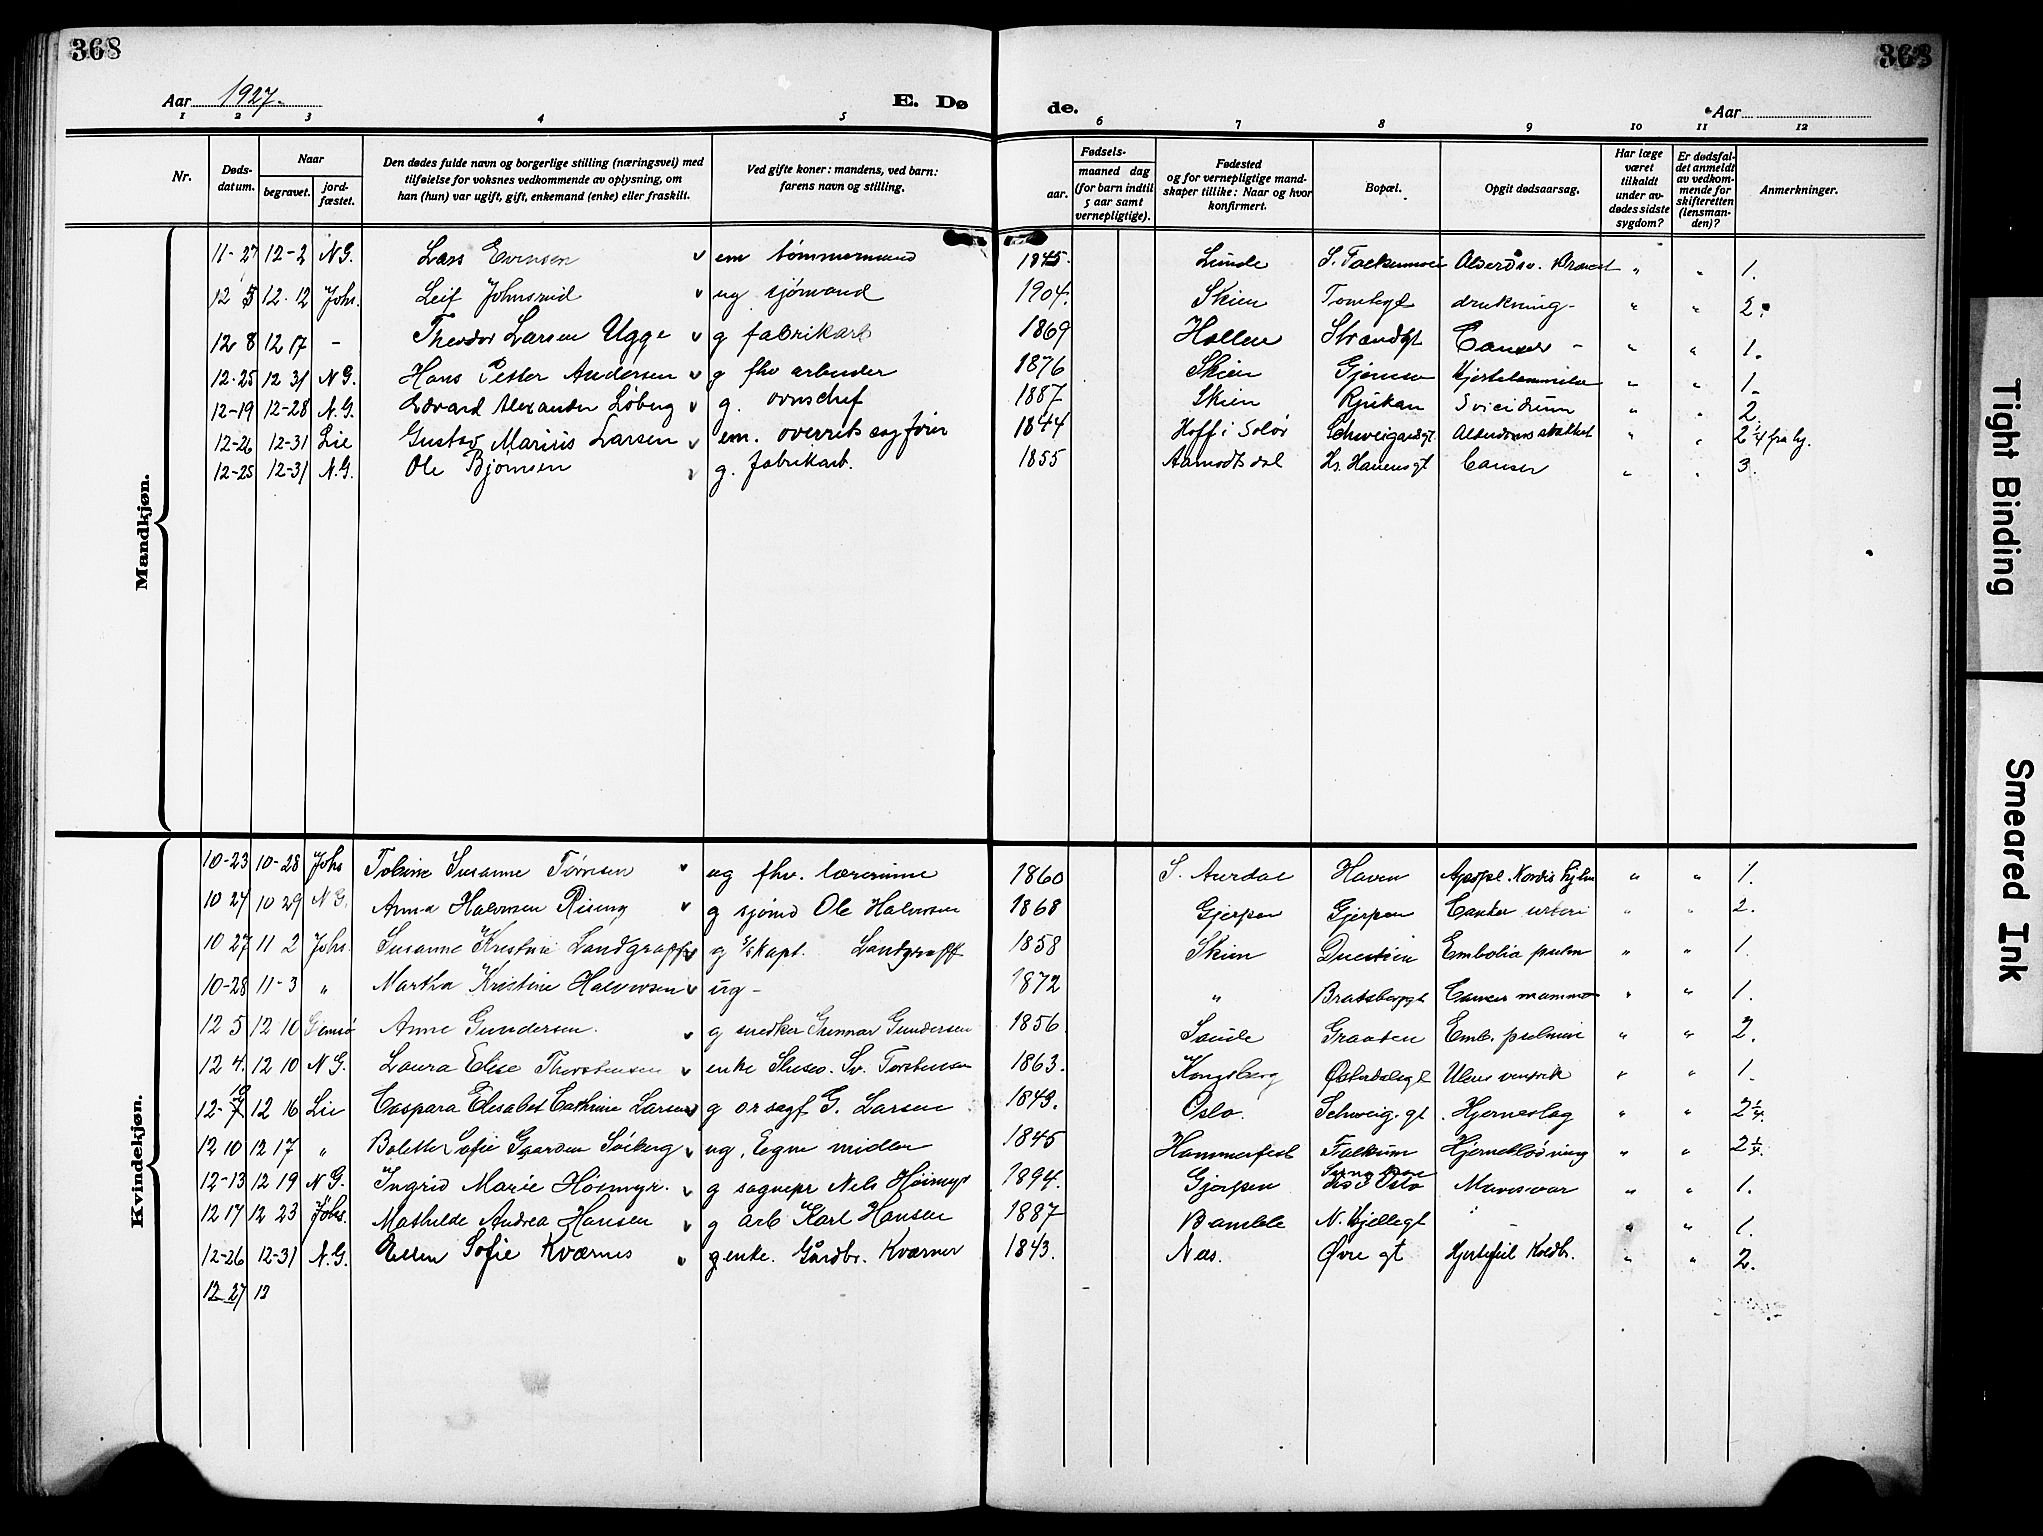 368
368
Aar 1927.
E. Dø
de.
Aar
1 2 3 4 5 6 7 8 9 10 11 12
Nr.
Døds-
datum.
Naar
begravet.
jord-
fæstet.
Den dødes fulde navn og borgerlige stilling (næringsvei) med
tilføielse for voksnes vedkommende av oplysning, om
han (hun) var ugift, gift, enkemand (enke) eller fraskilt.
Ved gifte koner: mandens, ved barn:
farens navn og stilling.
Fødsels-
aar.
maaned dag
(for barn indtil
5 aar samt
vernepligtige).
Fødested
og for vernepligtige mand-
skaper tillike: Naar og hvor
konfirmert.
Bopæl.
Opgit dødsaarsag.
Har læge
været
tilkaldt
under av-
dødes sidste
sygdom?
Er dødsfal-
det anmeldt
av vedkom-
mende for
skifteretten
(lensman-
den)?
Anmerkninger.
Mandkjøn.
11-27 12-2 N G. Lars Evensen em tømmermand 1845. Lunde " " 1.
12 5 12.12 Johs. Leif Johnsrud ug sjömand 1904. Skien drukning - " " 2.
12 8 12 17 - Theodor Larsen Ugge g fabrikarb 1869 Hollen Strandgt Cancer - " " 1.
12-25 12 31 N G. Hans Petter Andersen g fhv arbeider 1876 Skien Gjemsø " " 1.
12-19 12-28 N.G. Edvard Alexander Løberg g. ovnschef 1887 Skien Rjukan Suicidium " " 2.
12-26 12-31 Lie Gustav Marius Larsen em. overretssagfører 1844 Hoff i Solør Schweigaardsgt. " " 2 1/4 fra hj.
12-25 12-31 N.G. Ole Bjørnsen g. fabrikarb. 1855 Aamodtsdal Hs. Hauensgt Cancer " " 3.
Kvindekjøn.
10-23 10-28 Johs Susanne Tørresen ug fhv. lærerinne 1860 S. Aurdal Haven " " 1.
10 24 10 29 N G. Anna Halvorsen Rising g sjömd Ole Halvorsen 1868 Gjerpen Gjerpen Cancer uteri " " 2.
10 27 11 2 Johs. Susanne Kristine Landgraff g s/kapt. Landgraff 1858 Skien Duestien Embolia pulm " " 1.
10-28 11-3 " Martha Kristine Halvorsen ug - 1872 " Bratsbergt Cancer mamma " " 1.
12 5 12 10 Gjemsø Anne Gundersen. g snedker Gunnar Gundersen 1856. Saude Graaten Emb. pulmon " " 2.
12 4. 12 10 N G. Laura Elise Thorstensen enke Sv. Torstensen 1863. Kongsberg Østerdalsgt Ulcus ventrik " " 1.
12- 7 12 16 Lie Caspara Elisabet Cathrine Larsen g o.r sagf G. Larsen 1849. Oslo. Schweig. gt. Hjerneslag " " 2 1/4.
12 10 12 17 " Bolette Sofie Gaarder Solberg ug, Egne midler 1845 Hammerfest Falkum Hjerneblødning " " 2 1/4.
12-13 12 19 N G. Ingrid Marie Høismyr. g sognepr Nels Høismyr 1894. Gjerpen Oslo Mavesaar " " 1.
12 17 12 23 Johs. Mathilde Andrea Hansen g arb Karl Hansen 1887 Bamble N. Hjellegt " " 1.
12-26 12-31 N.G. Ellen Sofie Kværnes g enke. Gårdbr. Kværner 1843. Nes. Øvre gt Hjertefeil Koldbr. " " 2.
12 27 12
Tight Binding
Smeared Ink